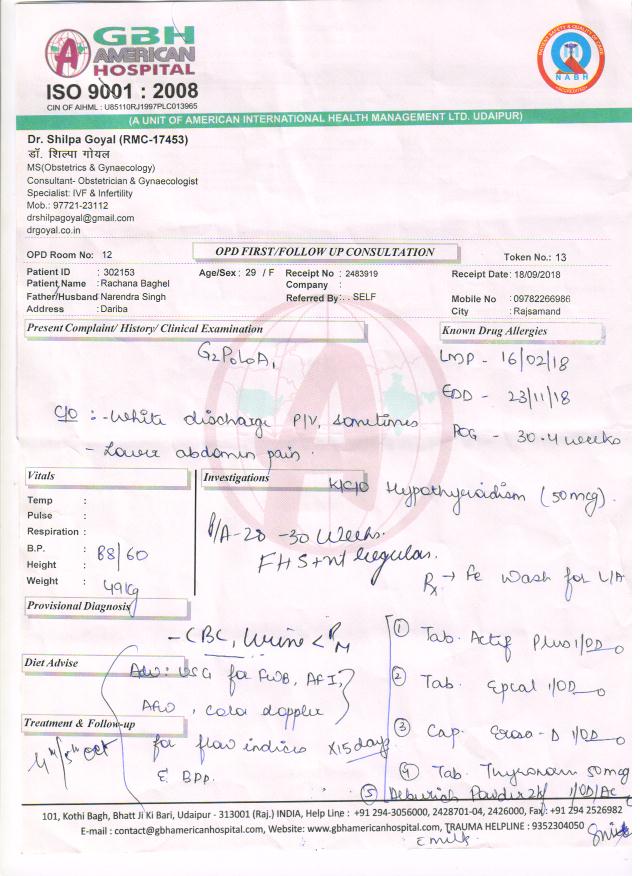 GBH
AMERICAN
HOSPITAL
ISO 9001 : 2008
CIN OF AIHML : U85110RJ1997PLC013965
NABH
(A UNIT OF AMERICAN INTERNATIONAL HEALTH MANAGEMENT LTD. UDAIPUR)
Dr. Shilpa Goyal (RMC-17453)
डॉ. शिल्पा गोयल
MS(Obstetrics & Gynaecology)
Consultant- Obstetrician & Gynaecologist
Specialist: IVF & Infertility
Mob.: 97721-23112
drshilpagoyal@gmail.com
drgoyal.co.in
OPD Room No: 12 OPD FIRST/FOLLOW UP CONSULTATION Token No.: 13
Patient ID : 302153 Age/Sex : 29 / F Receipt No : 2483919 Receipt Date: 18/09/2018
Patient Name : Rachana Baghel Company :
Father/Husband Narendra Singh Referred By: . . SELF Mobile No : 09782266986
Address : Dariba City : Rajsamand
Present Complaint/ History/ Clinical Examination Known Drug Allergies
G2P0L0A1 LMP - 16/02/18
EDD - 23/11/18
C/O :- White discharge P/V, sometimes POG - 30.4 weeks
- Lower abdomin pain .
Vitals Investigations K/C/O Hypothyroidism (50mcg) .
Temp :
Pulse :
Respiration : P/A-28-30 Weeks.
B.P. : 88/60 FHS+nt Regular.
Height :
Weight : 49kg Rx → Fe Wash for L/A
Provisional Diagnosis
- CBC, Urine < R/M ① Tab. Actif Plus 1/OD
Diet Advise Adv: USG for FWB, AFI, ② Tab. Epcal 1/OD
AFW, color doppler
Treatment & Follow-up for flow indices x15 days ③ Cap. D 1/OD
4th/5th oct & BPP. ④ Tab. Thyronorm 50mcg
⑤ Powder 1/OD/AC
101, Kothi Bagh, Bhatt Ji Ki Bari, Udaipur - 313001 (Raj.) INDIA, Help Line : +91 294-3056000, 2428701-04, 2426000, Fax : +91 294 2526982
E-mail : contact@gbhamericanhospital.com, Website: www.gbhamericanhospital.com, TRAUMA HELPLINE : 9352304050
c milk.